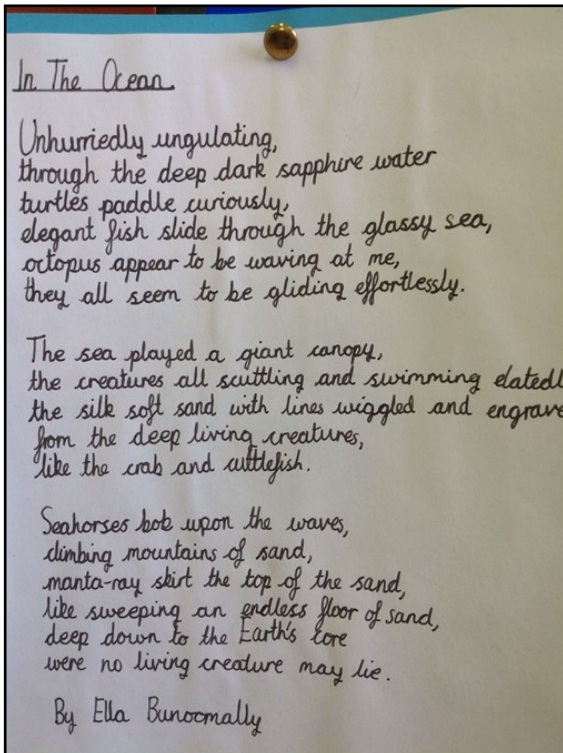 In The Ocean
Unhurriedly ungulating,
through the deep dark sapphire water
turtles paddle curiously,
elegant fish slide through the glassy sea,
octopus appear to be waving at me,
they all seem to be gliding effortlessly.
The sea played a giant canopy,
the creatures all scuttling and swimming elatedl
the silk soft sand with lines wiggled and engrave
from the deep living creatures,
like the crab and cuttlefish.
Seahorses bob upon the waves,
climbing mountains of sand,
manta-ray skirt the top of the sand,
like sweeping an endless floor of sand,
deep down to the Earth's core
were no living creature may lie.
By Ella Bunoomally